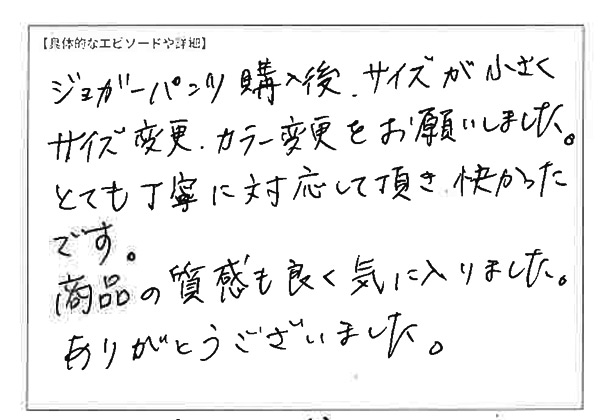 【具体的なエピソードや詳細】
ジョガーパンツ購入後、サイズが小さく
サイズ変更、カラー変更をお願いしました。
とても丁寧に対応して頂き、快かった
です。
商品の質感も良く気に入りました。
ありがとうございました。